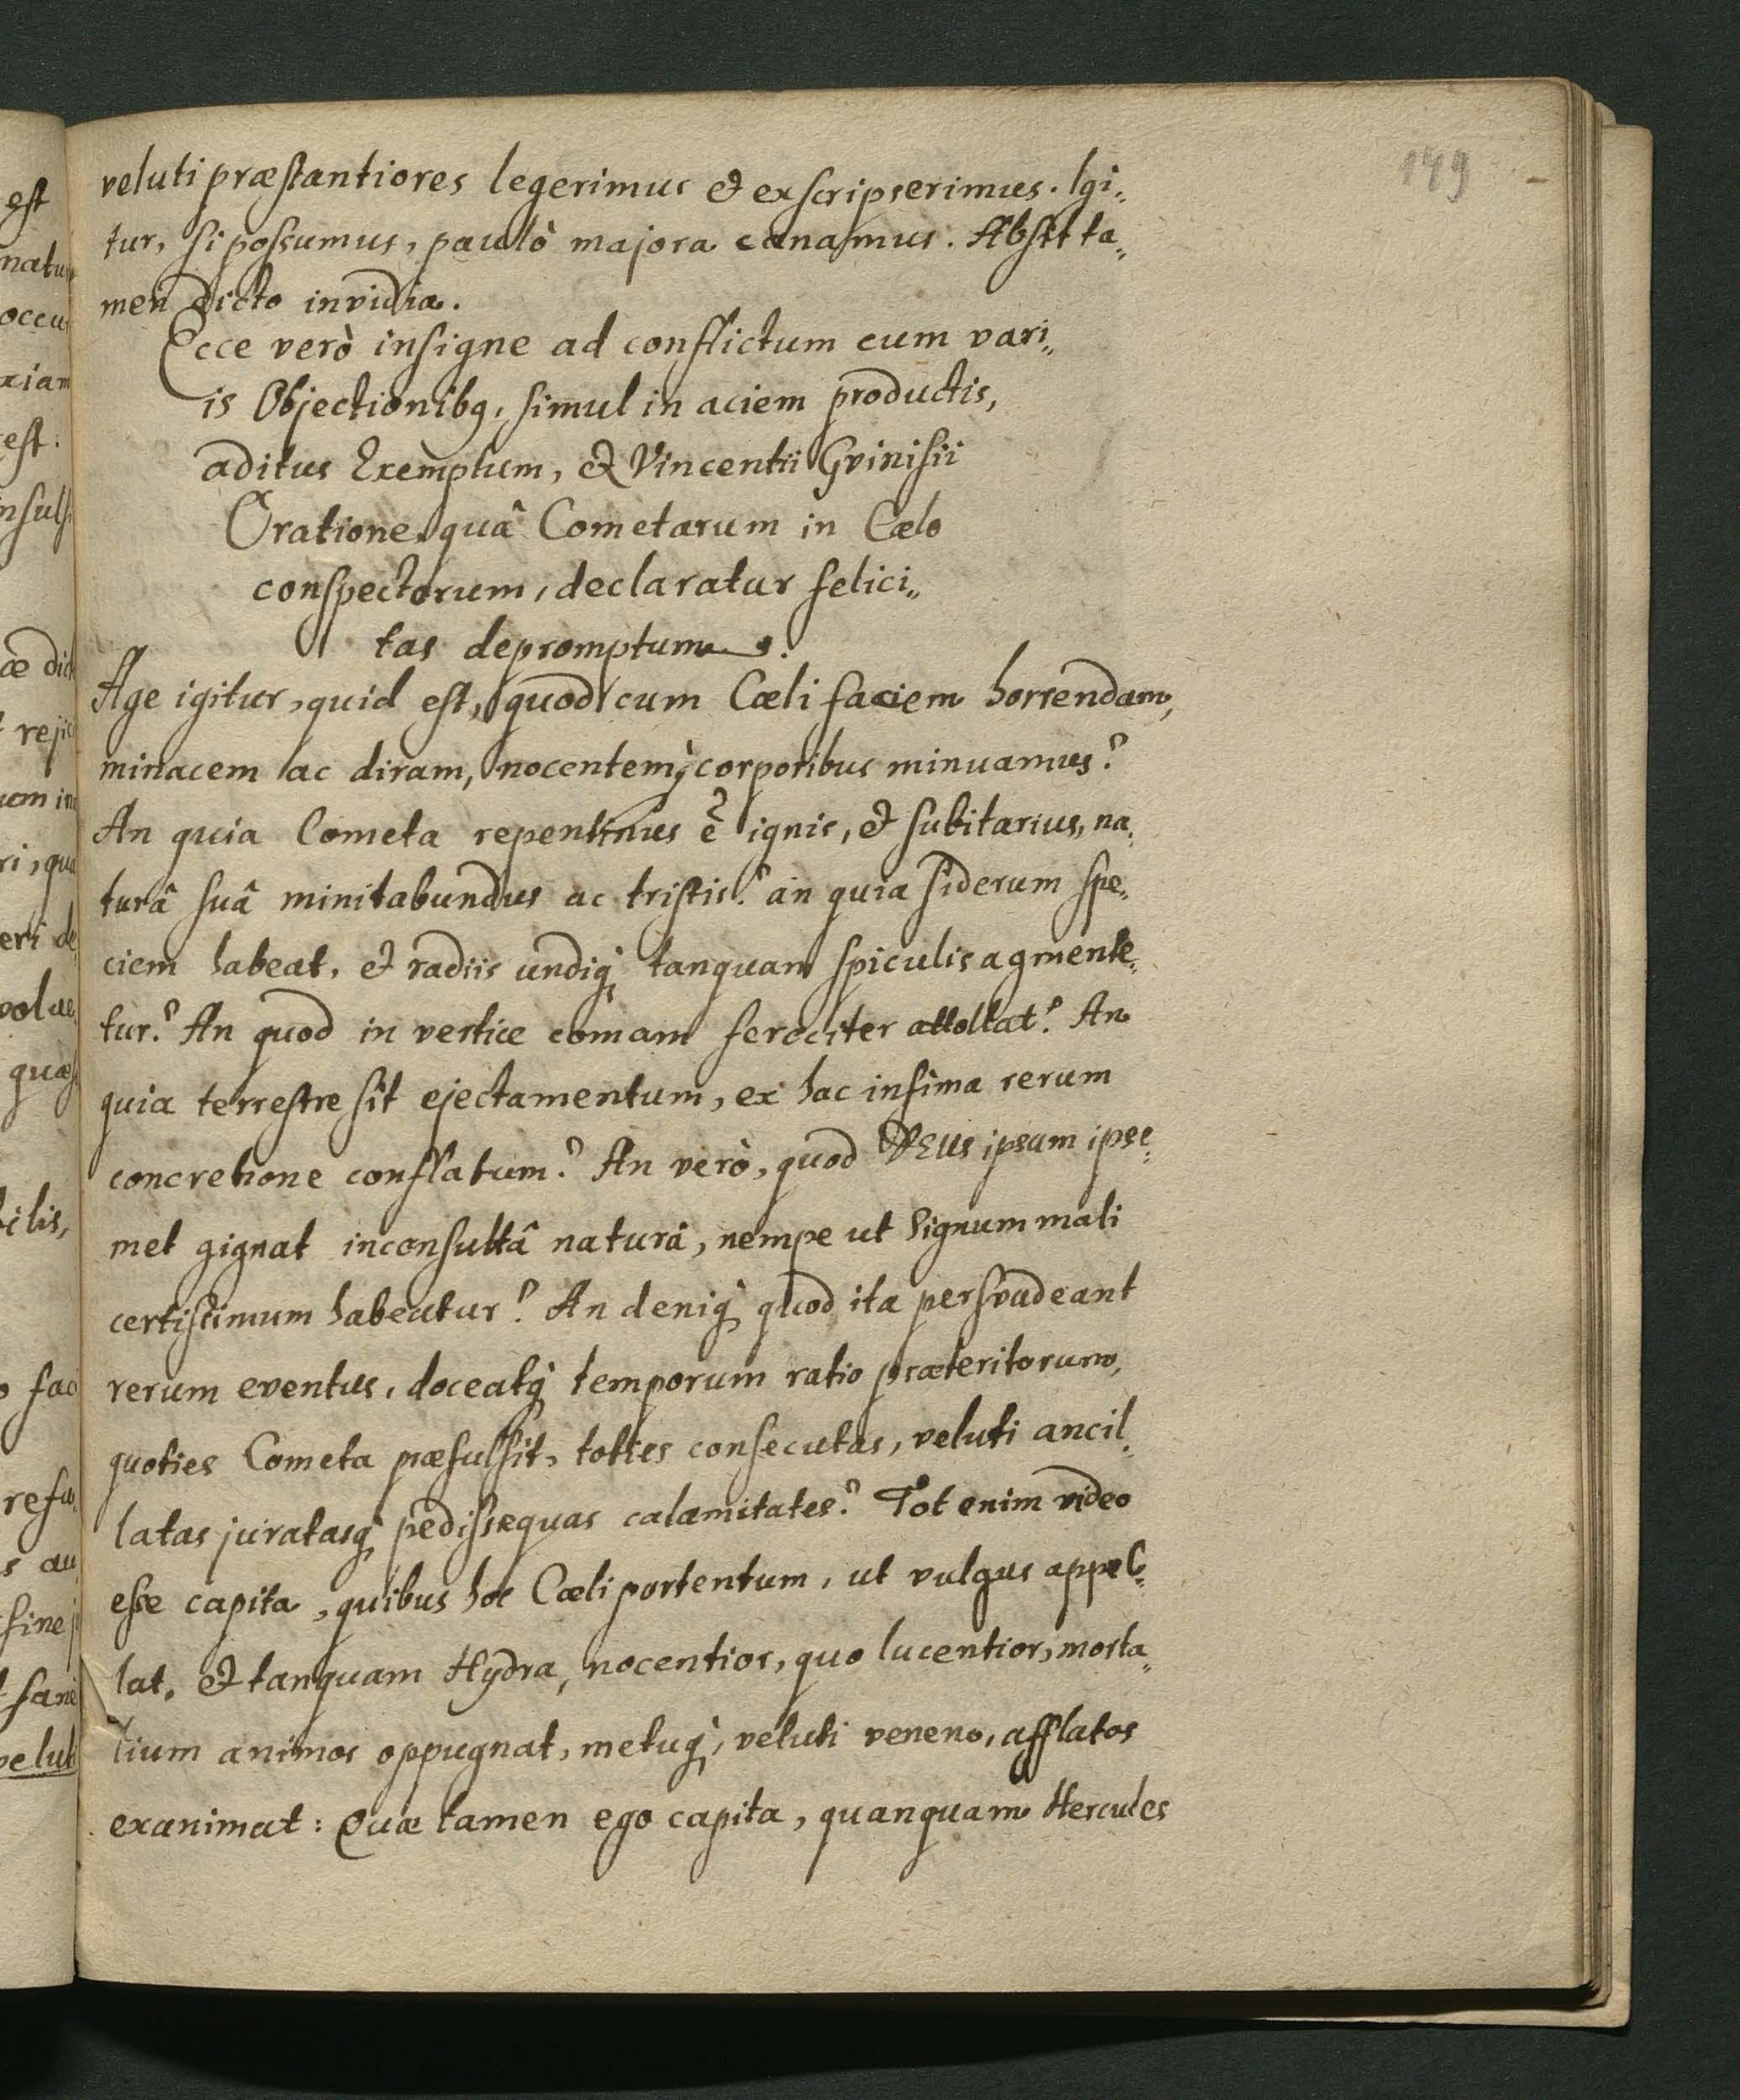 149
veluti præstantiores legerimus & exscripserimus. Igi„
tur, si possumus, paulò majora canamus. Absit ta„
men dicto invidia.
Ecce verò insigne ad conflictum cum vari„
is Objectionibq, simul in aciem productis,
aditus Exemplum, & Vincentii Gvinisii
Oratione, quâ Cometarum in Cælo
conspectorum, declaratur felici„
tas depromptum.
Age igitur, quid est, quod cum Cæli faciem horrendam,
minacem ac diram, nocentemq; corporibus minuamus?
An quia Cometa repentinus ē ignis, & subitarius, na„
turâ suâ minitabundus ac tristis? an quia siderum spe„
ciem habeat, & radiis undiq; tanquam spiculis agmente„
tur? An quod in vertice comam ferociter attollat? An
quia terrestre sit ejectamentum, ex hac infima rerum
concretione conflatum? An verò, quod DEUs ipsum ipse„
met gignat inconsultâ naturâ, nempe ut signum mali
certissimum habeatur? An deniq; quod ita persvadeant
rerum eventus, doceatq; temporum ratio præteritorum,
quoties Cometa præfulsit, toties consecutas, veluti ancil„
latas juratasq; pedissequas calamitates? Tot enim video
esse capita, quibus hoc Cæli portentum, ut vulgus appel„
lat, & tanquam Hydra, nocentior, quo lucentior, morta„
lium animos oppugnat, metuq;, veluti veneno, afflatos
exanimat: Quæ tamen ego capita, quanquam Hercules
est
occu
est:
eri de
quæ
bilis,
sine
velut